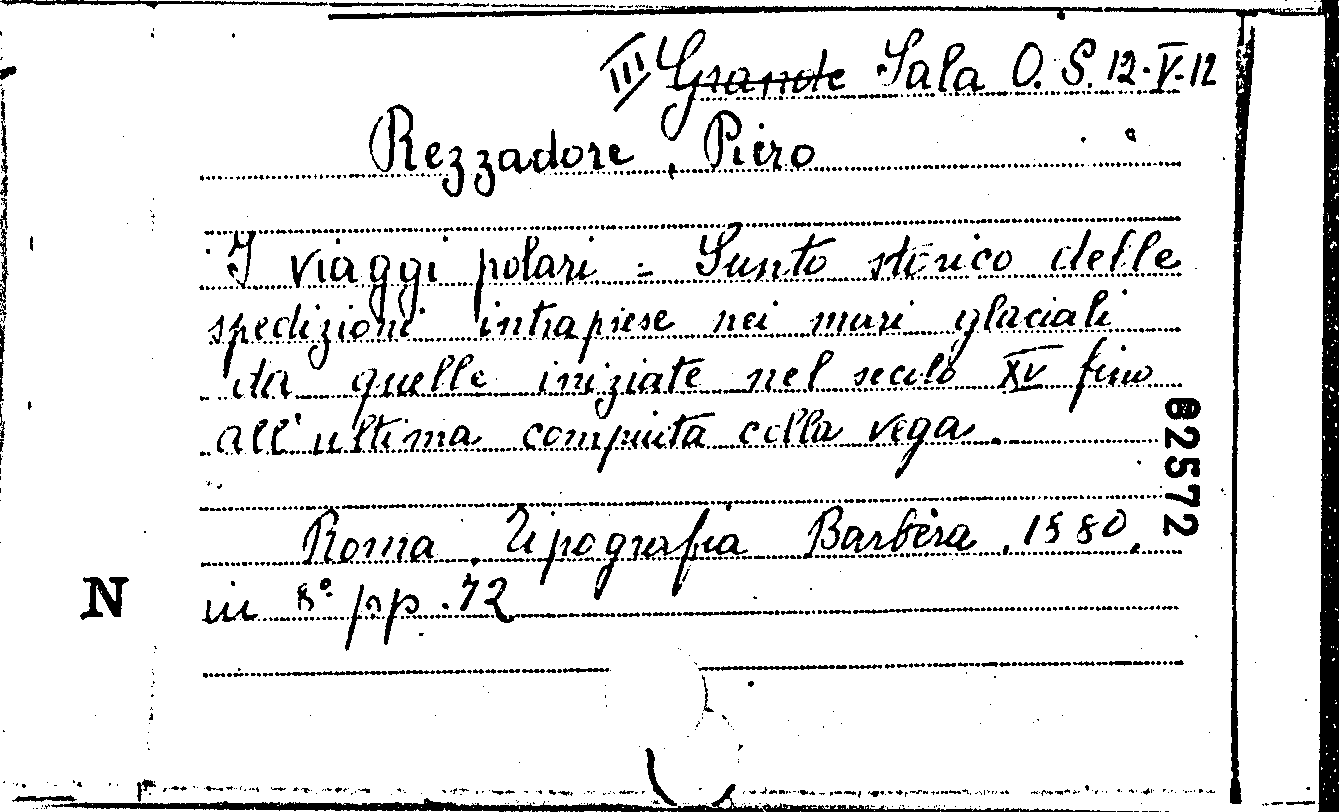 III Grande Sala O. S. 12-V-12
Rezzadore, Piero
I viaggi polari = Sunto storico delle
spedizioni intraprese nei mari glaciali
da quelle iniziate nel secolo XV fino
all'ultima compiuta colla vega.
82572
Roma, Tipografia Barbèra, 1880,
in 8° pp. 72
N